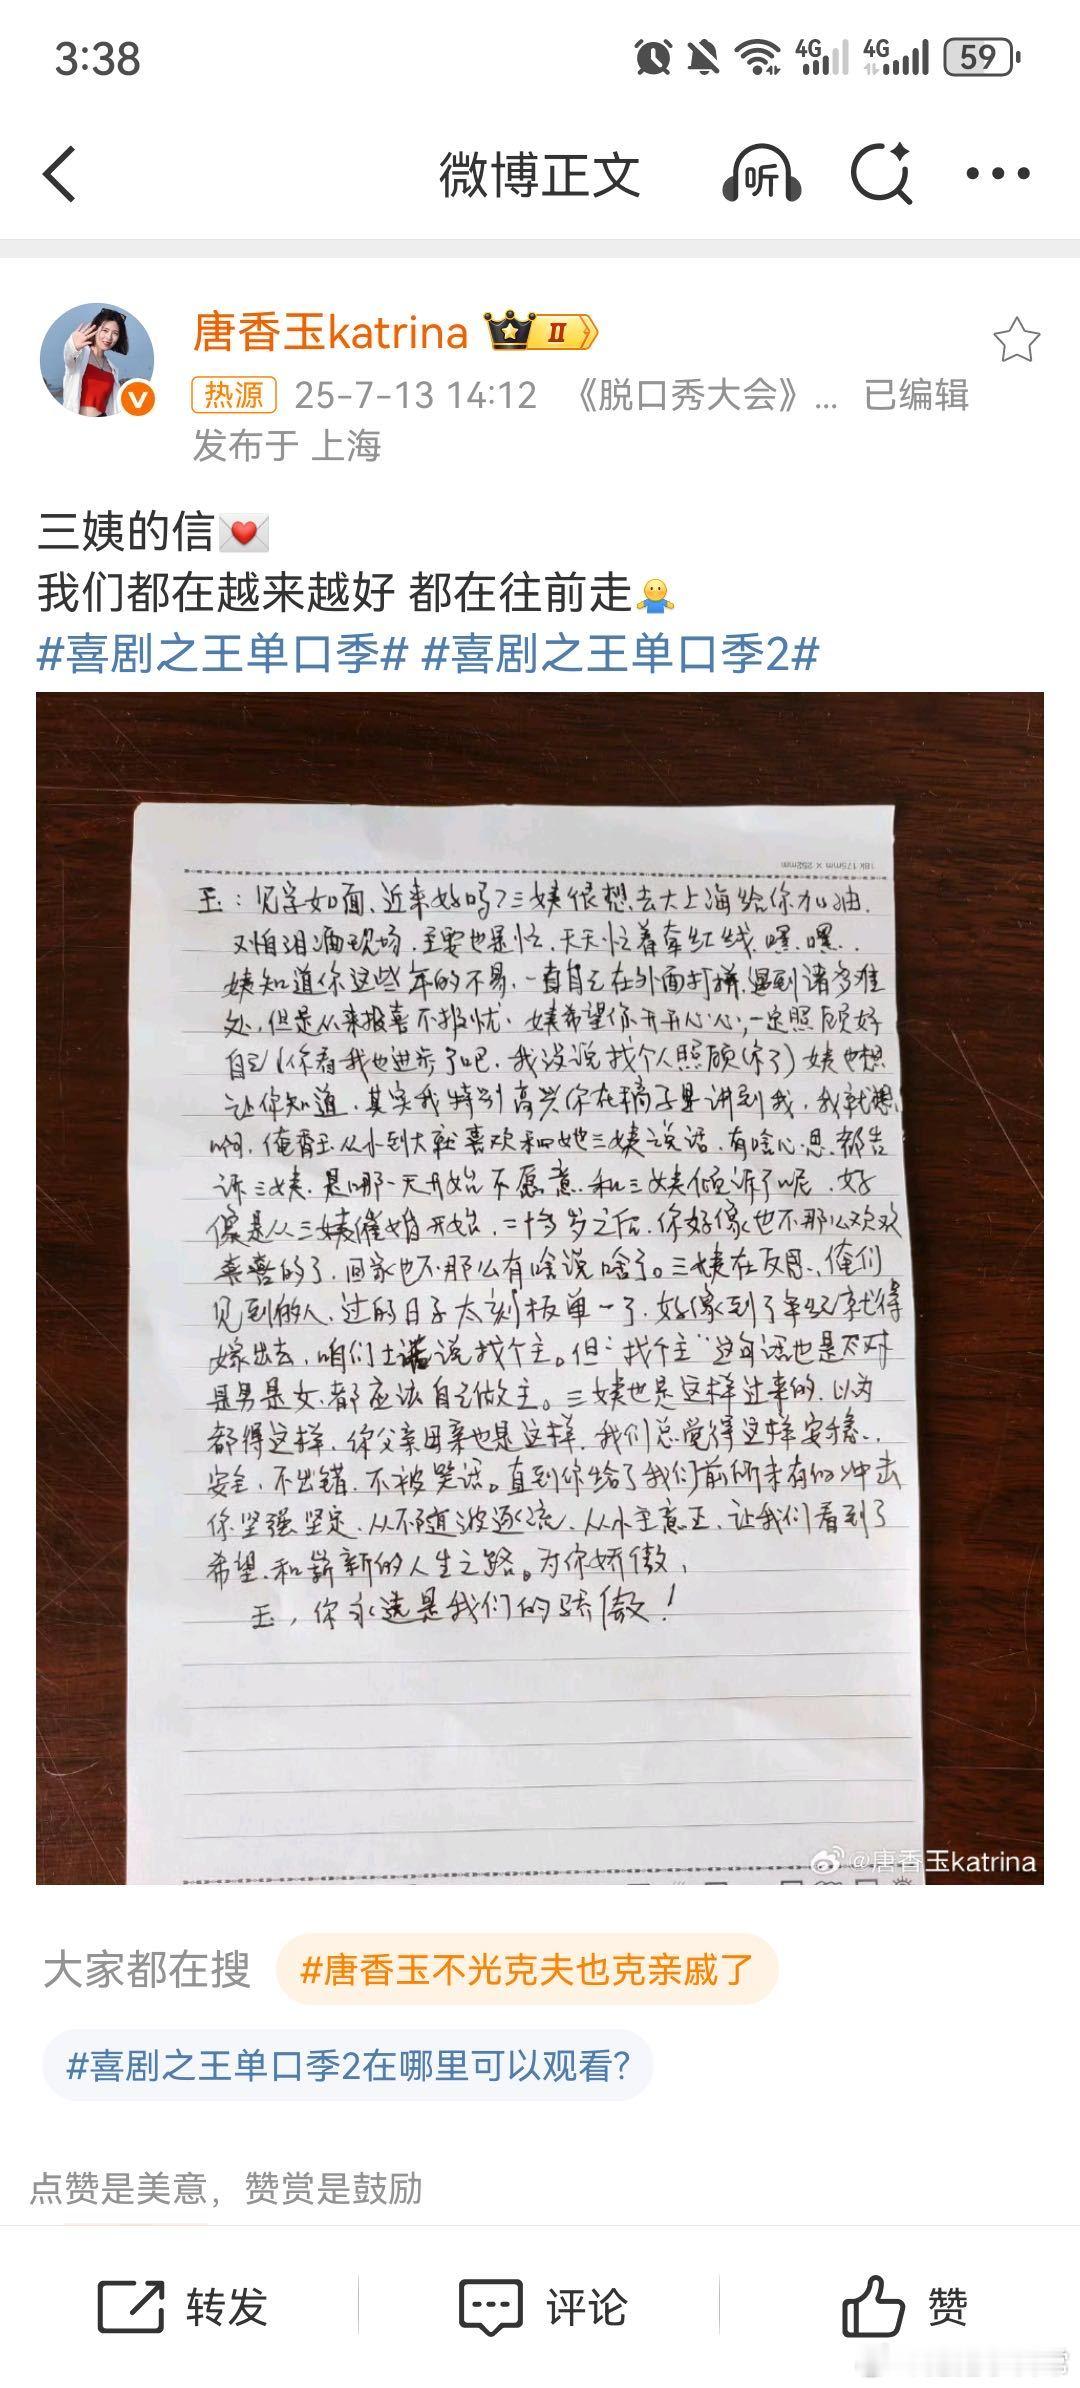 3:38
4G 4G 59
微博正文 听
唐香玉katrina II
热源 25-7-13 14:12 《脱口秀大会》... 已编辑
发布于 上海
三姨的信
我们都在越来越好 都在往前走
#喜剧之王单口季# #喜剧之王单口季2#
18k 175mm × 252mm
玉：见字如面、近来好吗？三姨很想去大上海给你加油．
又怕泪洒现场．主要也是忙．天天忙着牵红线．嘿．嘿．．
姨知道你这些年的不易．一直自己在外面打拼．遇到诸多难
处．但是从来报喜不报忧．姨希望你开开心心，一定照顾好
自己（你看我也进步了吧．我没说找个人照顾你了）姨也想
让你知道．其实我特别高兴你在稿子里讲到我．我就想
啊．俺香玉从小到大就喜欢和她三姨说话．有啥心思．都告
诉三姨．是哪一天开始不愿意．和三姨倾诉了呢．好
像是从三姨催婚开始．二十多岁之后．你好像也不那么欢欢
喜喜的了．回家也不那么有啥说啥了。三姨在反思．俺们
见到的人．过的日子太刻板单一了．好像到了年纪就得
嫁出去．咱们土话说找个主。但“找个主”这句话也是不对
是男是女．都应该自己做主。三姨也是这样过来的．以为
都得这样．你父亲母亲也是这样．我们总觉得这样安稳．．
安全．不出错．不被笑话。直到你给了我们前所未有的冲击
你坚强坚定．从不随波逐流．从小主意正．让我们看到了
希望．和崭新的人生之路。为你骄傲，
玉，你永远是我们的骄傲！
@唐香玉katrina
大家都在搜 #唐香玉不光克夫也克亲戚了
#喜剧之王单口季2在哪里可以观看?
点赞是美意，赞赏是鼓励
转发 评论 赞